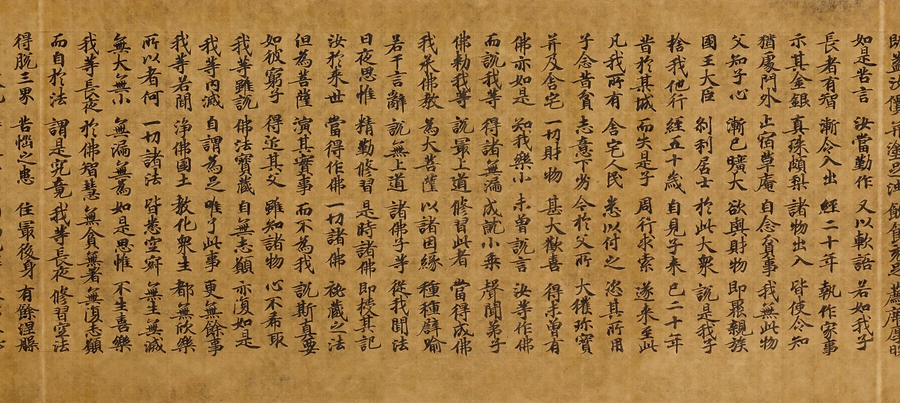 如是苦言 汝當勤作 又以軟語 若如我子
長者有智 漸令入出 經二十年 執作家事
示其金銀 真珠頗梨 諸物出入 皆使令知
猶處門外 止宿草庵 自念貧事 我無此物
父知子心 漸已曠大 欲與財物 即聚親族
國王大臣 剎利居士 於此大衆 說是我子
捨我他行 經五十歲 自見子來 已二十年
昔於某城 而失是子 周行求索 遂來至此
凡我所有 舍宅人民 悉以付之 恣其所用
子念昔貧 志意下劣 今於父所 大獲珍寶
并及舍宅 一切財物 甚大歡喜 得未曾有
佛亦如是 知我樂小 未曾說言 汝等作佛
而說我等 得諸無漏 成就小乘 聲聞弟子
佛勅我等 說最上道 修習此者 當得成佛
我承佛教 為大菩薩 以諸因緣 種種譬喻
若干言辭 說無上道 諸佛子等 從我聞法
日夜思惟 精勤修習 是時諸佛 即授其記
汝於來世 當得作佛 一切諸佛 祕藏之法
但為菩薩 演其實事 而不為我 說斯真要
如彼窮子 得近其父 雖知諸物 心不希取
我等雖說 佛法寶藏 自無志願 亦復如是
我等內滅 自謂為足 唯了此事 更無餘事
我等若聞 淨佛國土 教化衆生 都無欣樂
所以者何 一切諸法 皆悉空寂 無生無滅
無大無小 無漏無為 如是思惟 不生喜樂
我等長夜 於佛智慧 無貪無著 無復志願
而自於法 謂是究竟 我等長夜 修習空法
得脫三界 苦惱之患 住最後身 有餘涅槃